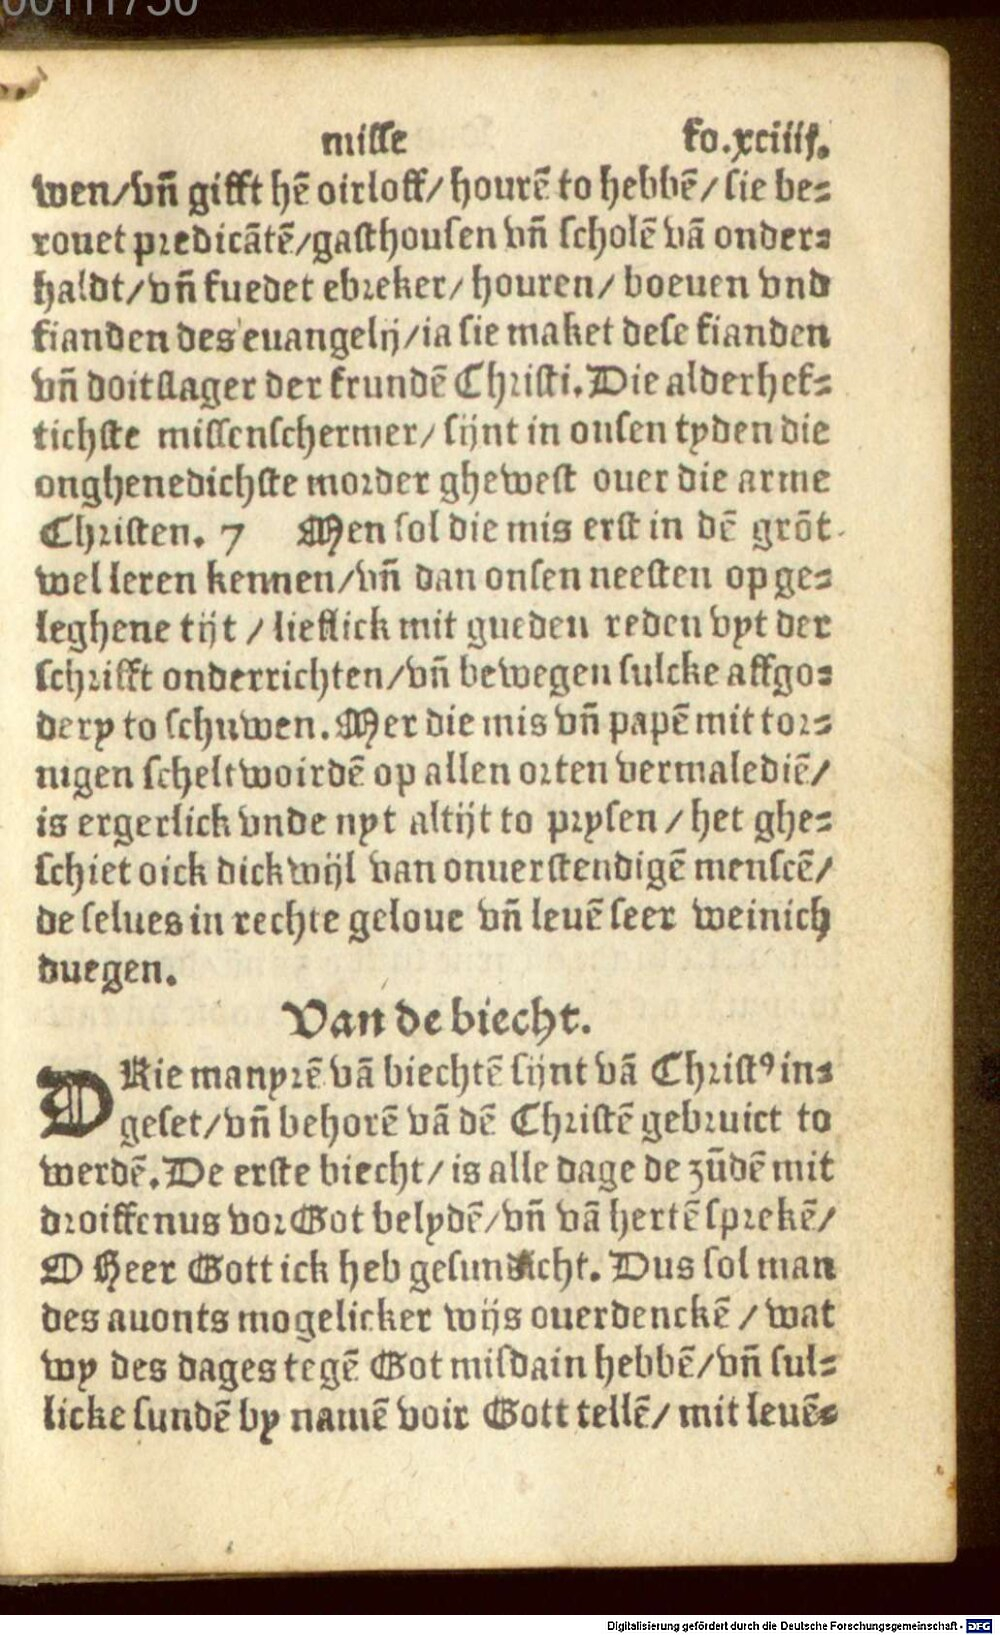 00111730
misse fo.xciiij.
wen/vn̄ gifft hē oirloff/hourē to hebbē/sie be⸗
rouet predicātē/gasthousen vn̄ scholē vā onder⸗
haldt/vn̄ fuedet ebreker/houren/boeuen vnd
fianden des euangelij/ia sie maket dese fianden
vn̄ doitslager der frundē Christi. Die alderhef⸗
tichste missenschermer/sijnt in onsen tyden die
onghenedichste morder ghewest ouer die arme
Christen. 7 Men sol die mis erst in dē grōt
wel leren kennen/vn̄ dan onsen neesten op ge⸗
leghene tijt/lieflick mit gueden reden vyt der
schrifft onderrichten/vn̄ bewegen sulcke affgo⸗
dery to schuwen. Mer die mis vn̄ papē mit tor⸗
nigen scheltwoirdē op allen orten vermaledië/
is ergerlick vnde nyt altijt to prysen/het ghe⸗
schiet oick dickwijl van onuerstendigē menscē/
de selues in rechte geloue vn̄ leuē seer weinich
duegen.
Van de biecht.
DRie manyrē vā biechtē sijnt vā Christꝰ in⸗
geset/vn̄ behorē vā dē Christē gebruict to
werdē. De erste biecht/is alle dage de zūdē mit
droiffenus vor Got belydē/vn̄ vā hertē sprekē/
O Heer Gott ick heb gesundicht. Dus sol man
des auonts mogelicker wijs ouerdenckē/wat
wy des dages tegē Got misdain hebbē/vn̄ sul⸗
licke sundē by namē voir Gott tellē/mit leuē⸗
Digitalisierung gefördert durch die Deutsche Forschungsgemeinschaft - DFG